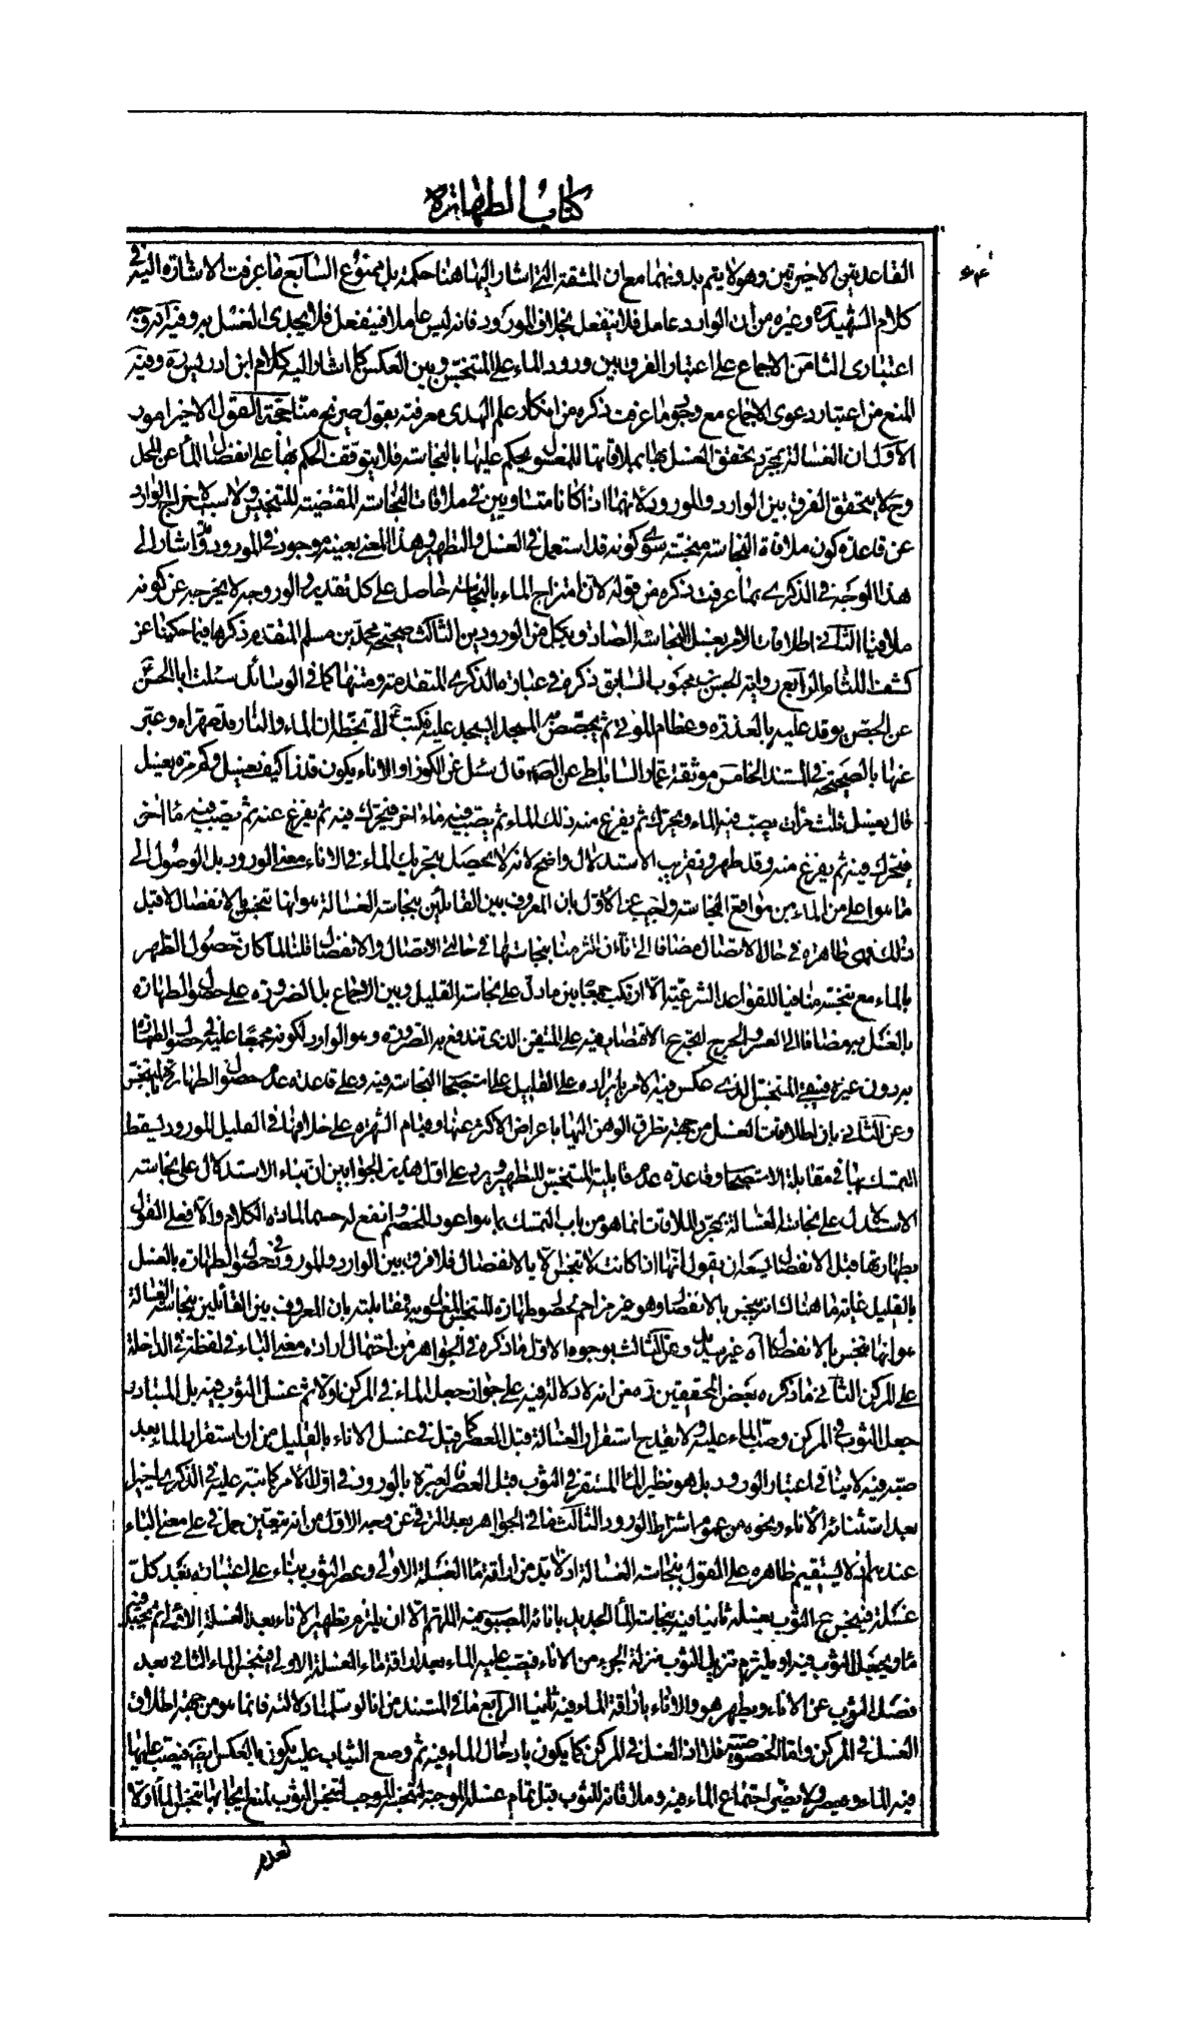 كتاب الطهارة
القاعدتين الاخيرتين وهو لا يتم بدونهما مع ان المشقة التي اشار اليها هنا حكمة بل ممنوع السابع ما عرفت الاشارة اليه في
كلام الشهيد ره وغيره من ان الوارد عامل فلا ينفعل بخلاف المورود فانه ليس عاملا فينفعل فلا يجدى الغسل به وفيه انه وجه
اعتبارى الثامن الاجماع على اعتبار الفرق بين ورود الماء على المتنجس وبين العكس كما اشار اليه كلام ابن ادريس ره وفيه
المنع من اعتبار دعوى الاجماع مع وجود ما عرفت ذكره من انكار علم الهدى معرفته بقول صريح منا حجة القول الاخير امور
الاول ان الغسالة بمجرد تحقق الغسل بها بملاقاتها للمغسول يحكم عليها بالنجاسة فلا يتوقف الحكم بها على انفصال الماء عن المحل
وح لا يتحقق الفرق بين الوارد والمورود لانهما اذا كانا متساويين في ملاقات النجاسة المقتضية للتنجيس ولا سبب لاخراج الوارد
عن قاعدة كون ملاقاة النجاسة منجسة سوى كونه قد استعمل في الغسل والتطهير وهذا المعنى بعينه موجود في المورود واشار الى
هذا الوجه في الذكرى بما عرفت ذكره من قوله لان امتزاج الماء بالنجاسة حاصل على كل تقدير والورود لا يخرجه عن كونه
ملاقيا الثاني اطلاقات الامر بغسل النجاسة الصادق بكل من الورودين الثالث صحيحة محمد بن مسلم المتقدم ذكرها فيما حكيناه عن
كشف اللثام الرابع رواية الحسن بن محبوب السابق ذكره في عبارة الذكرى المتقدمة ومتنها كما في الوسائل سئلت ابا الحسن
عن الجص يوقد عليه بالعذرة وعظام الموتى ثم يجصص به المسجد ايسجد عليه فكتب الى بخطه ان الماء والنار قد طهراه وعبر
عنها بالصحيحة في المستند الخامس موثقة عمار الساباطي عن الصادق قال سئل عن الكوز او الاناء يكون قذرا كيف يغسل وكم مرة يغسل
قال يغسل ثلث مرات يصب فيه الماء ويحرك ثم يفرغ منه ذلك الماء ثم يصب فيه ماء اخر فيحرك فيه ثم يفرغ عنه ثم يصب فيه ماء اخر
فيحرك فيه ثم يفرغ منه وقد طهر وتقريب الاستدلال واضح لانه لا يحصل بتحريك الماء في الاناء معنى الورود بل الوصول الى
ما هو اعلى من الماء من مواقع النجاسة واجيب عن الاول بان المعروف بين القائلين بنجاسة الغسالة هو انها تنجس بالانفصال لا قبل
ذلك فهي طاهرة في حال الاتصال مضافا الى انا وان التزمنا بنجاستها في حالتي الاتصال والانفصال قلنا لما كان حصول التطهر
بالماء مع تنجسه منافيا للقواعد الشرعية الا انه ارتكب جمعا بين ما دل على نجاسة القليل وبين الاجماع بل الضرورة على حصول الطهارة
بالغسل به مضافا الى العسر والحرج اتجه الاقتصار فيه على المتيقن الذى تندفع به الضرورة وهو الوارد لكونه مجمعا عليه في حصول الطهارة
به دون غيره فيبقى المتنجس الذى عكس فيه الامر بايراده على القليل على استصحاب النجاسة فيه وعلى قاعدة عدم حصول الطهارة بالمتنجس
وعن الثاني بان اطلاقات الغسل من جهة تطرق الوهن اليها باعراض الاكثر عنها وقيام الشهرة على خلافها في القليل المورود يسقط
التمسك بها في مقابلة الاستصحاب وقاعدة عدم قابلية المتنجس للتطهير ويرد على اول هذين الجوابين ان بناء الاستدلال على نجاسة
الاستدلال على نجاسة الغسالة بمجرد الملاقات انما هو من باب التمسك بما هو اعود للخصم وانفع له حسما لمادة الكلام والا فعلى القول
بطهارتها قبل الانفصال يسعه ان يقول انها اذا كانت لا تنجس الا بالانفصال فلا فرق بين الوارد والمورود في حصول الطهارة بالغسل
بالقليل غاية ما هناك انه ينجس بالانفصال وهو غير مزاحم لحصول طهارة المتنجس المغسول به فمقابلته بان المعروف بين القائلين بنجاسة الغسالة
هو انها تنجس بالانفصال اه غير سديد وعن الثالث بوجوه الاول ما ذكره في الجواهر من احتمال ارادة معنى الباء في لفظة في الداخلة
على المركن الثاني ما ذكره بعض المحققين ره من انه لا دلالة فيه على جواز جعل الماء في المركن اولا ثم غسل الثوب فيه بل المتبادر
جعل الثوب في المركن وصب الماء عليه ولا يقدح استقرار الغسالة قبل العصر كما قيل في غسل الاناء بالقليل من ان استقرار الماء بعد
صبه فيه لا ينافي اعتبار الورود بل هو نظير الماء المستقر في الثوب قبل العصر اذ العبرة بالورود في اول الامر كما نبه عليه في الذكرى اخيرا
بعد استثنائه الاناء ونحوه من عموم اشتراط الورود الثالث ما في الجواهر بعد الترقي عن وجه الاول من انه يتعين حمل في على معنى الباء
عندهم اذ لا يستقيم ظاهره على القول بنجاسة الغسالة اذ لا بد من اراقة ماء الغسلة الاولى وعصر الثوب بناء على اعتباره بعد كل
غسلة فينجس ح الثوب بغسله ثانيا فيه بنجاسة الماء الجديد باناء المصبوب فيه اللهم الا ان يلتزم بتطهير الاناء بعد الغسلة الاولى ثم يجعل فيه
ماء ويجعل الثوب فيه او يلتزم تنزيل الثوب منزلة الجزء من الاناء فيصب عليه الماء بعد اراقة ماء الغسلة الاولى فينجس الماء الثاني بعد
فصل الثوب عن الاناء ويطهر هو والاناء باراقة الماء فيه ثلثا الرابع ما في المستند من انا لو سلمنا دلالته فانما هو من جهة اطلاق
الغسل في المركن واما الخصوصية فلا اذ الغسل في المركن كما يكون بادخال الماء فيه ثم وضع الثياب عليه يكون بالعكس ايضا فيصب عليها
فيه الماء ويعصر ولا يضر اجتماع الماء فيه وملاقاته للثوب قبل تمام غسله الموجبة لتنجسه الموجب لتنجس الثوب لمنع ايجابها تنجس الماء اولا
لعدم